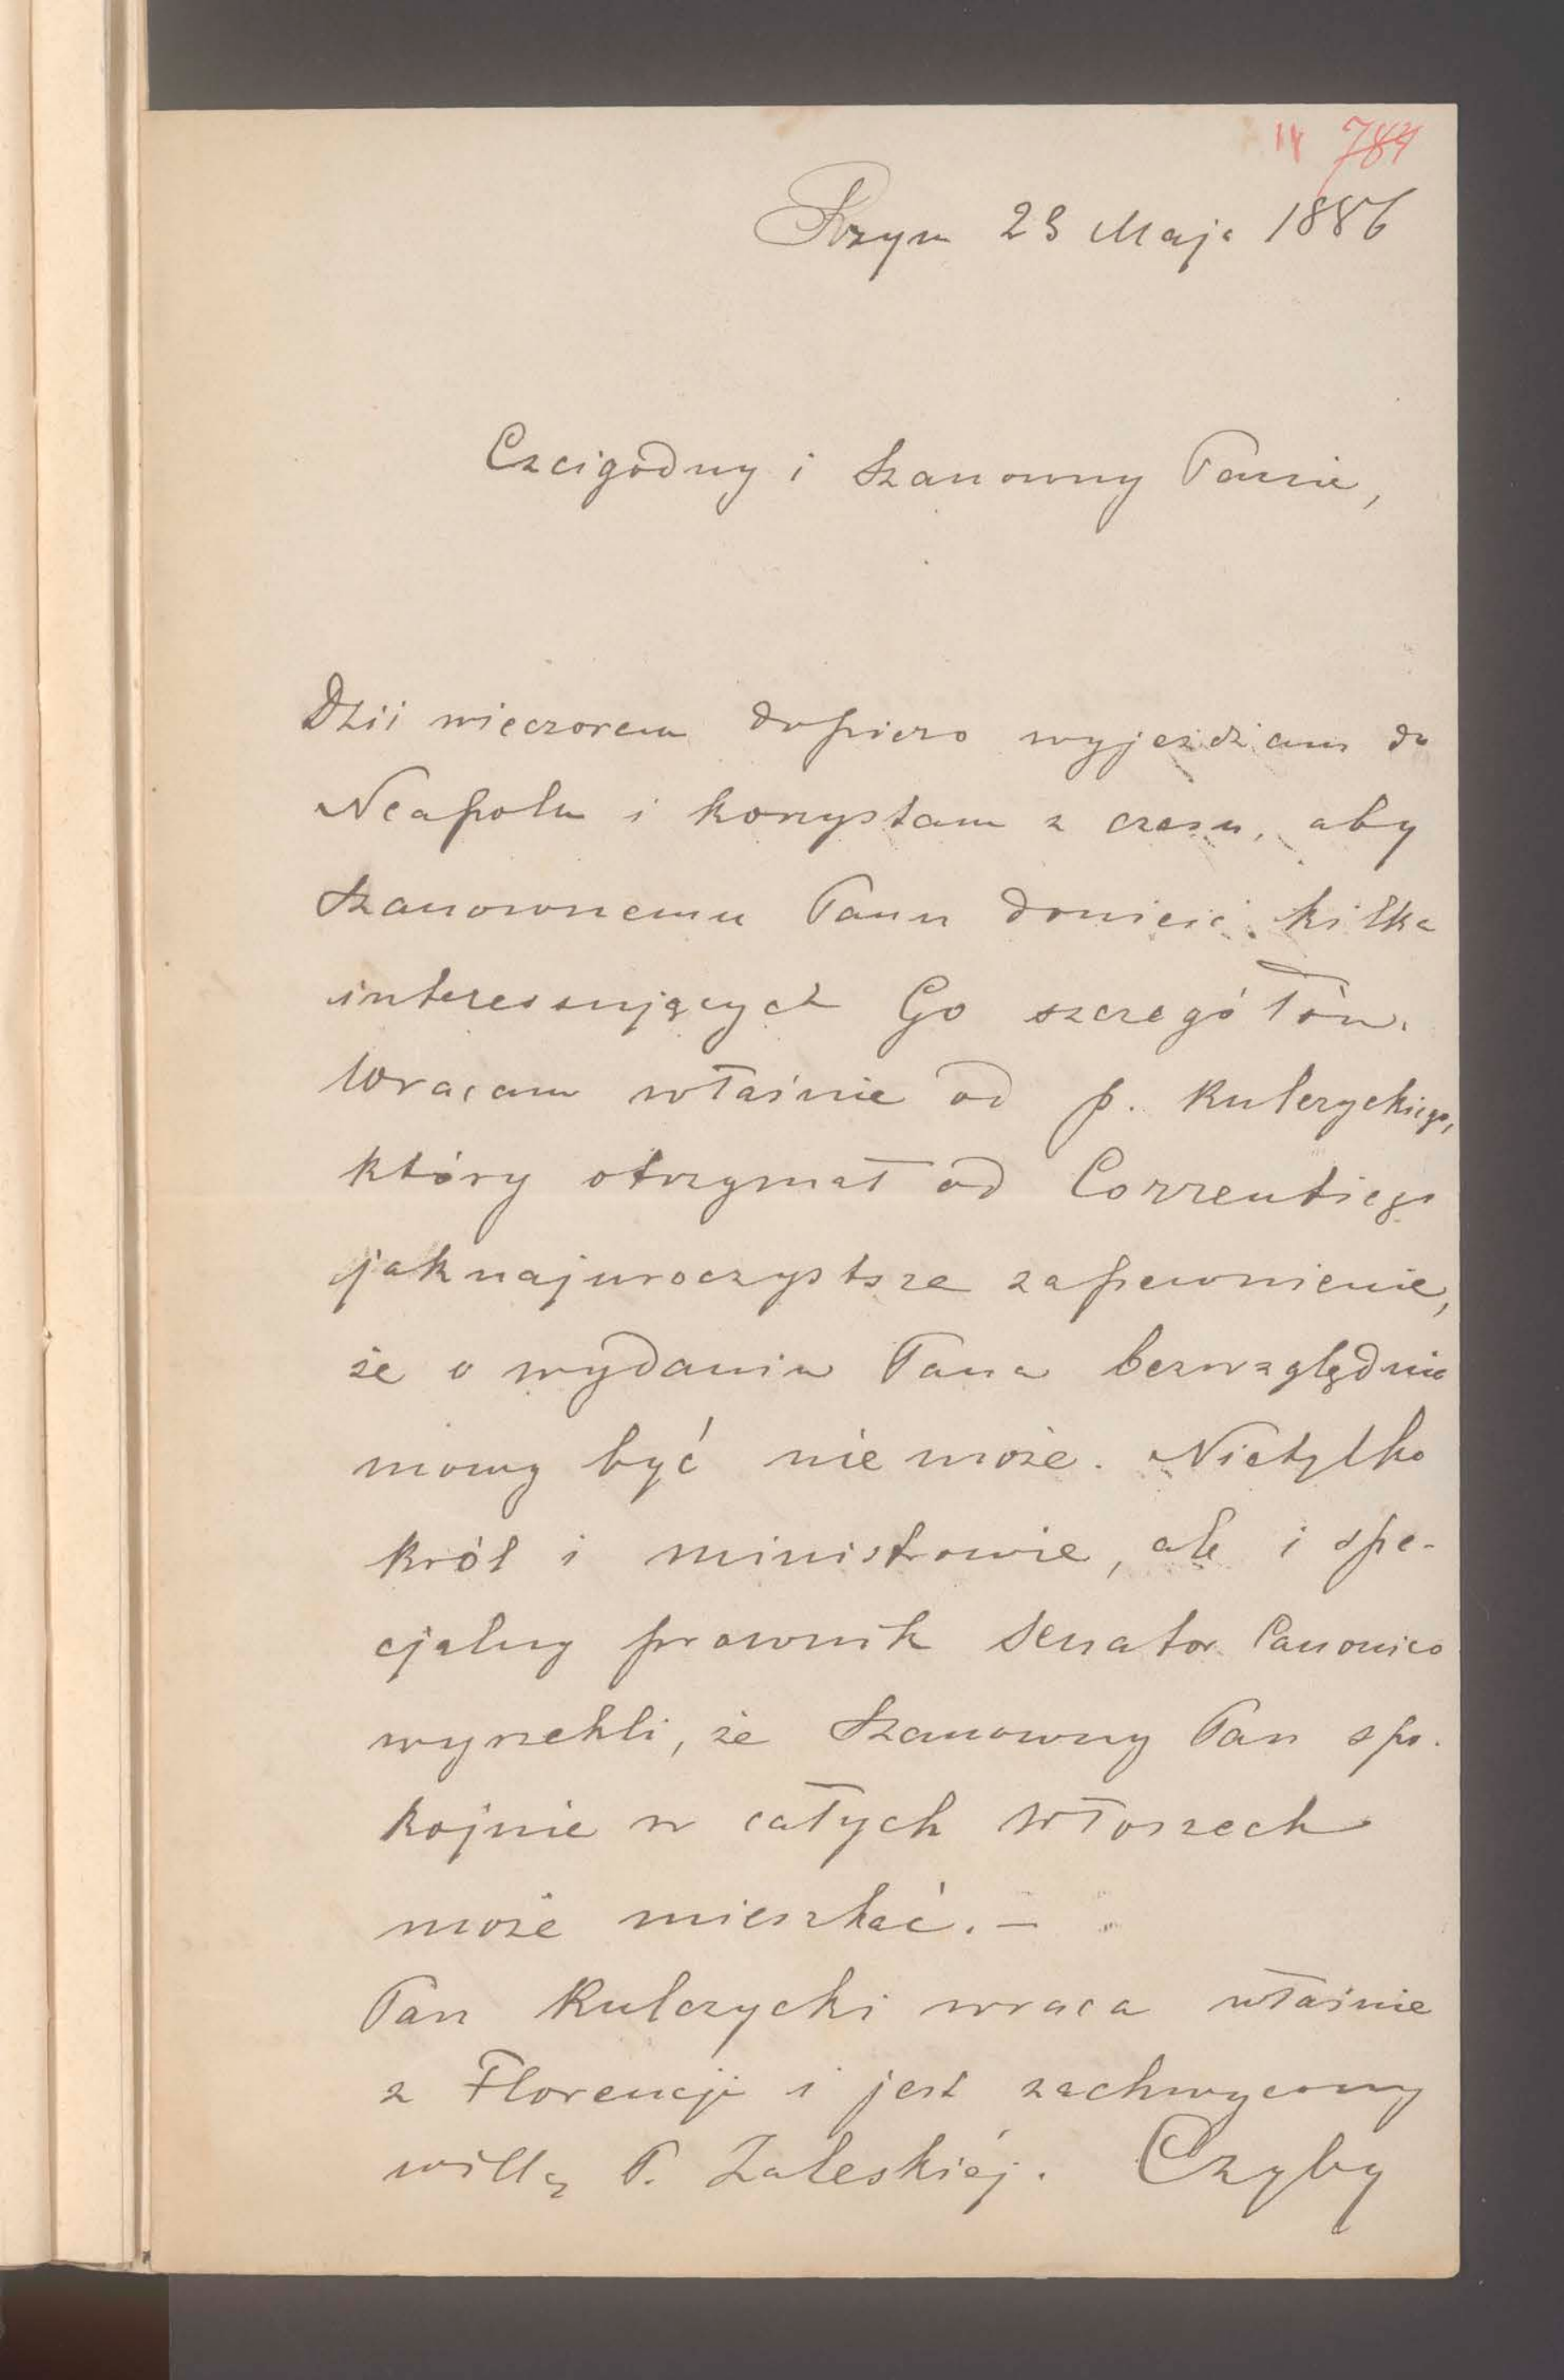 14 784
Rzym 23 Maja 1886
Czcigodny i Szanowny Panie,
Dziś wieczorem dopiero wyjeżdżam do
Neapolu i korzystam z czasu, aby
Szanownemu Panu donieść kilka
interessujących Go szczegółów.
Wracam właśnie od p. Kulczyckiego,
który otrzymał od Correntiego
jaknajuroczystsze zapewnienie,
że o wydaniu Pana bezwzględnie
mowy być nie może. Nietylko
król i ministrowie, ale i spe-
cjalny prawnik senator Canonico
wyrzekli, że Szanowny Pan spo-
kojnie w całych Włoszech
może mieszkać. —
Pan Kulczycki wraca właśnie
z Florencji i jest zachwycony
willą P. Zaleskiéj. Czyby